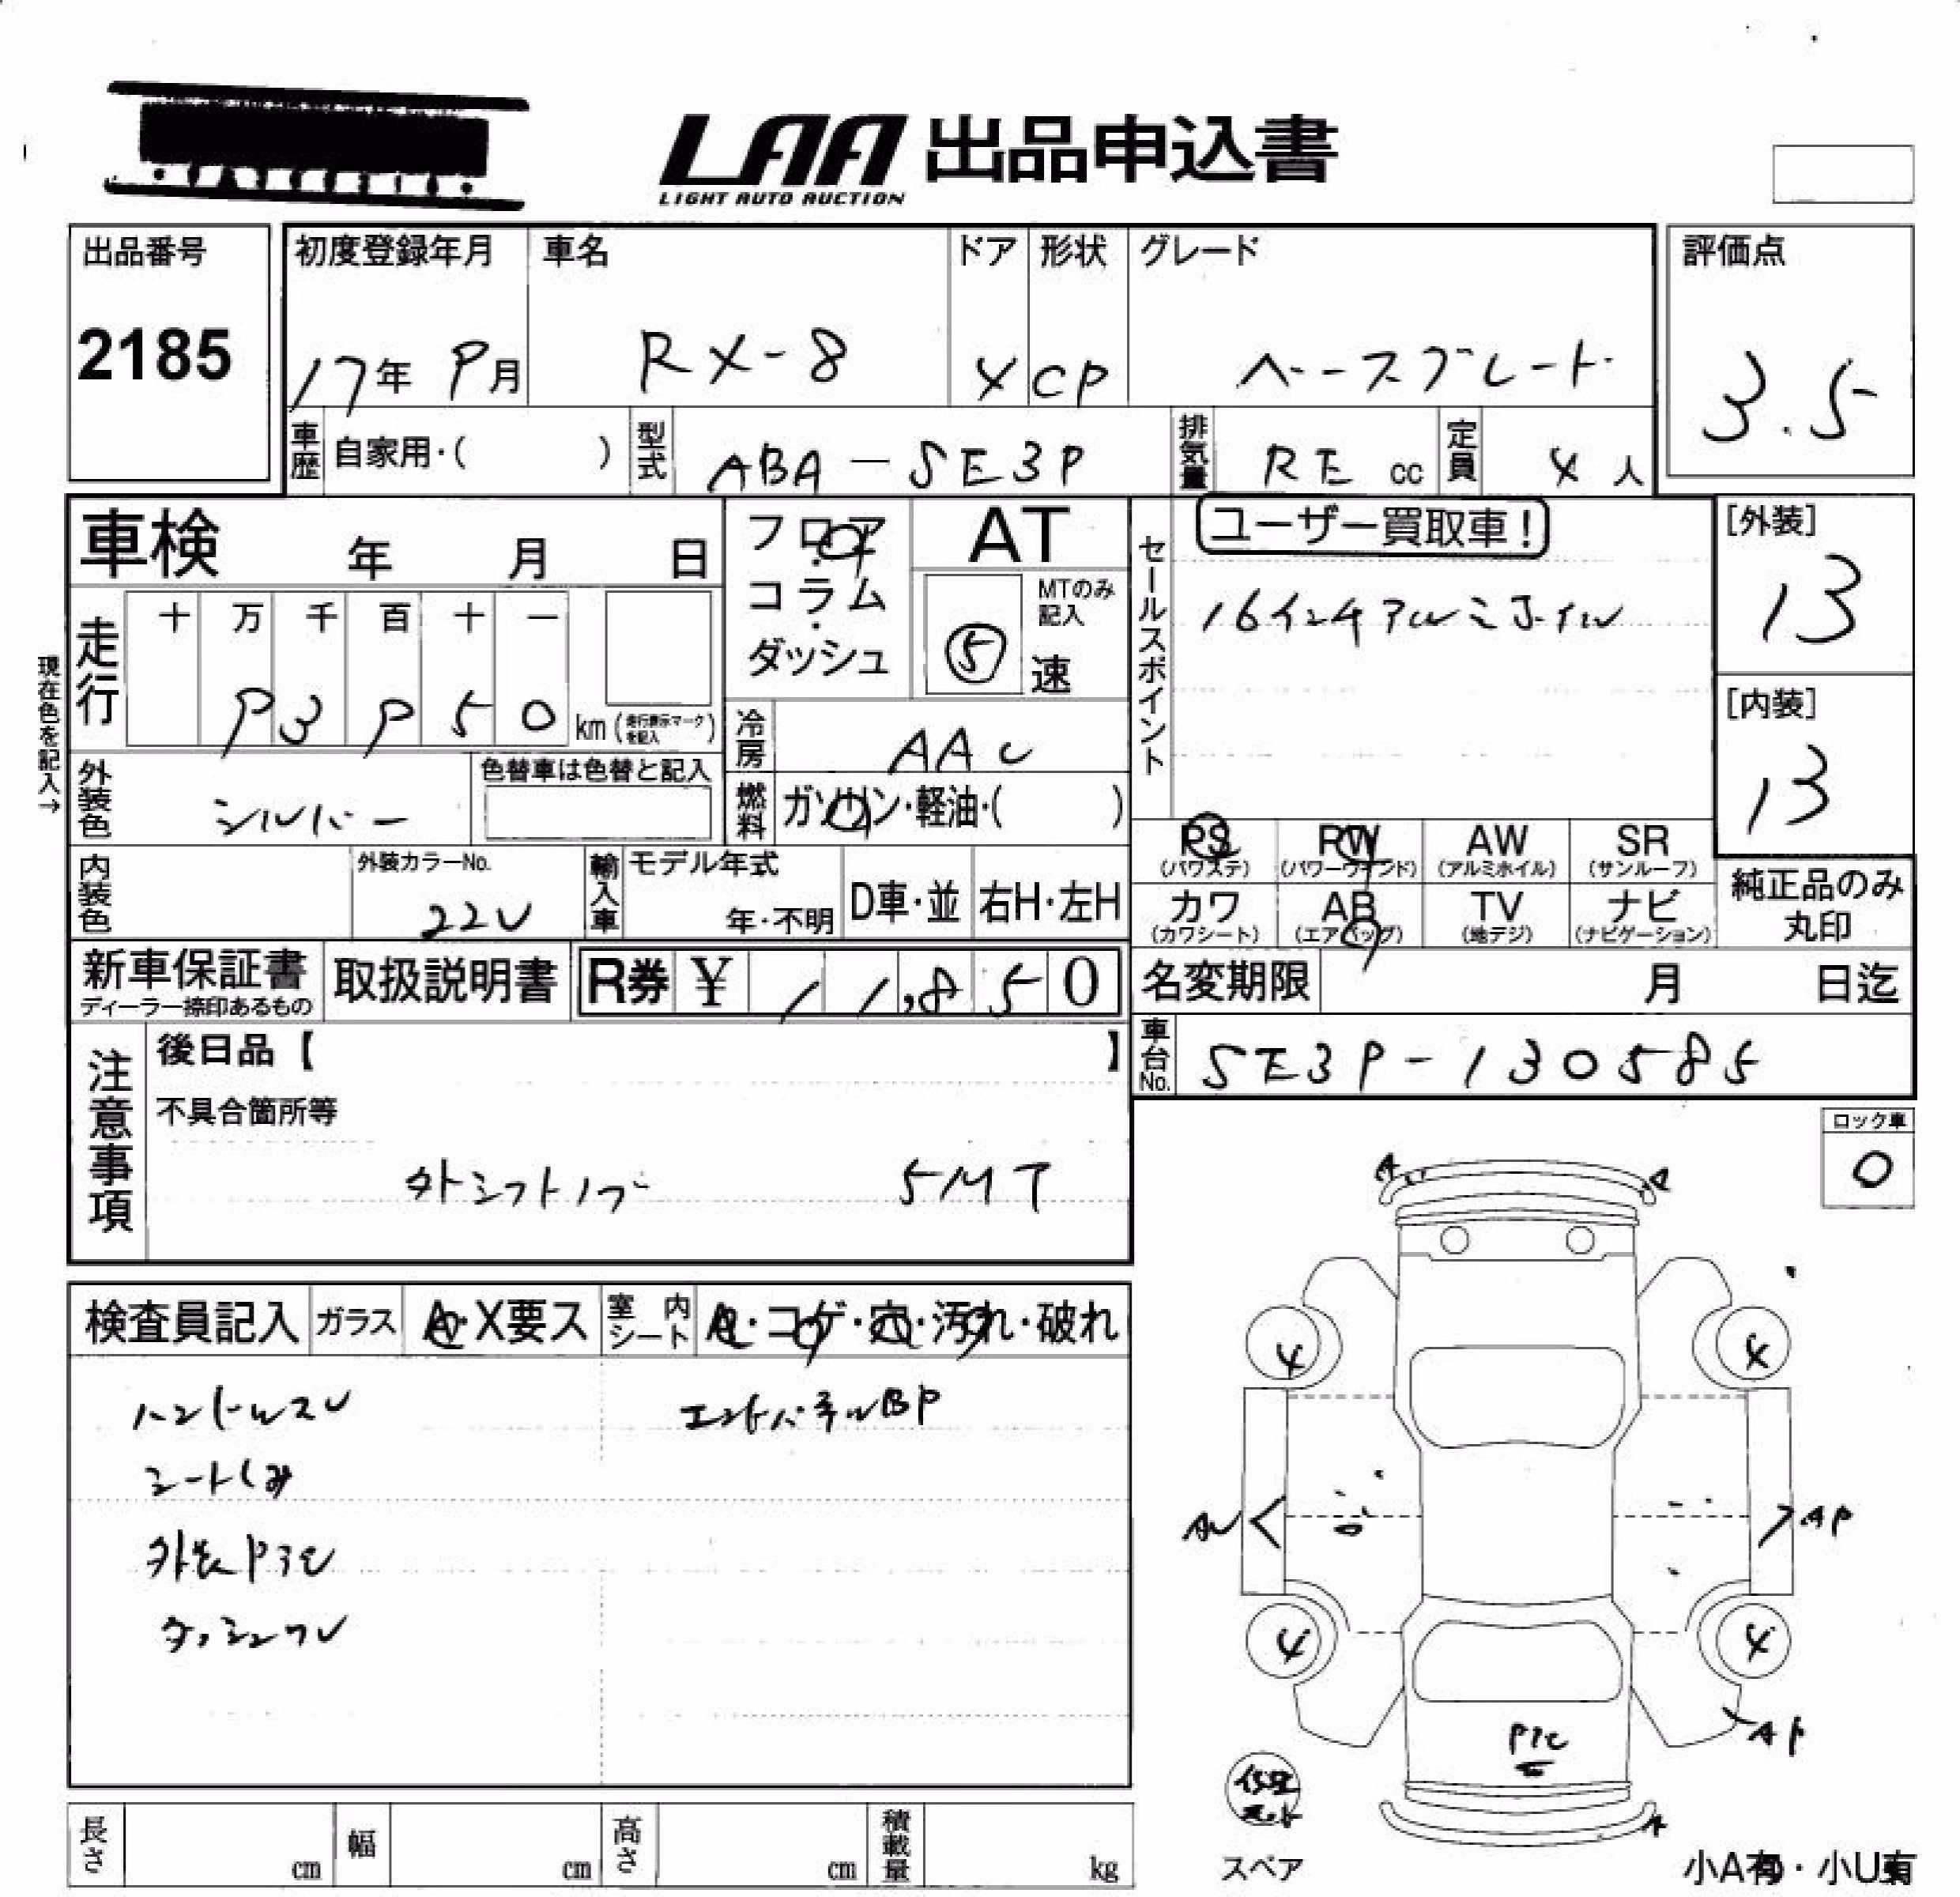 LAA 出品申込書
LIGHT AUTO AUCTION
出品番号
2185
初度登録年月
17年 9月
車名
RX-8
ドア
4
形状
CP
グレード
ベースグレード
評価点
3.5
車歴 自家用・( )
型式 ABA-SE3P
排気量 RE cc
定員 4 人
車検 年 月 日
フロア・コラム・ダッシュ
AT
MTのみ記入
⑤ 速
セールスポイント
ユーザー買取車!
16インチアルミホイル
[外装]
13
[内装]
13
現在色を記入→
走行
十 万 千 百 十 一
9 3 9 5 0 km (走行表示マークを記入)
冷房 AAC
外装色 シルバー
色替車は色替と記入
燃料 ガソリン・軽油・( )
内装色
外装カラーNo.
22V
輸入車 モデル年式
年・不明
D車・並
右H・左H
PS (パワステ)
PW (パワーウインド)
AW (アルミホイル)
SR (サンルーフ)
カワ (カワシート)
AB (エアバッグ)
TV (地デジ)
ナビ (ナビゲーション)
純正品のみ丸印
新車保証書
ディーラー捺印あるもの
取扱説明書
R券 ¥ 11,850
名変期限 月 日迄
車台No. SE3P-130585
注意事項
後日品【 】
不具合箇所等
外シフトノブ 5MT
ロック車
0
検査員記入
ガラス A・X要ス
室内シート A・コゲ・穴・汚れ・破れ
ハンドルスレ
エンドパネルBP
シートしみ
外装Pミモ
ダッシュワレ
A
A
4
4
AU
AP
4
4
AP
A
スペア
小A有・小U有
長さ cm
幅 cm
高さ cm
積載量 kg